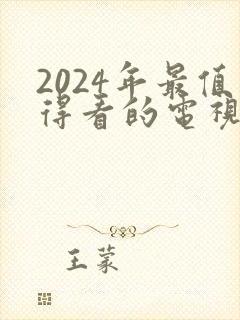 2024年最值
得看的電視
王蒙